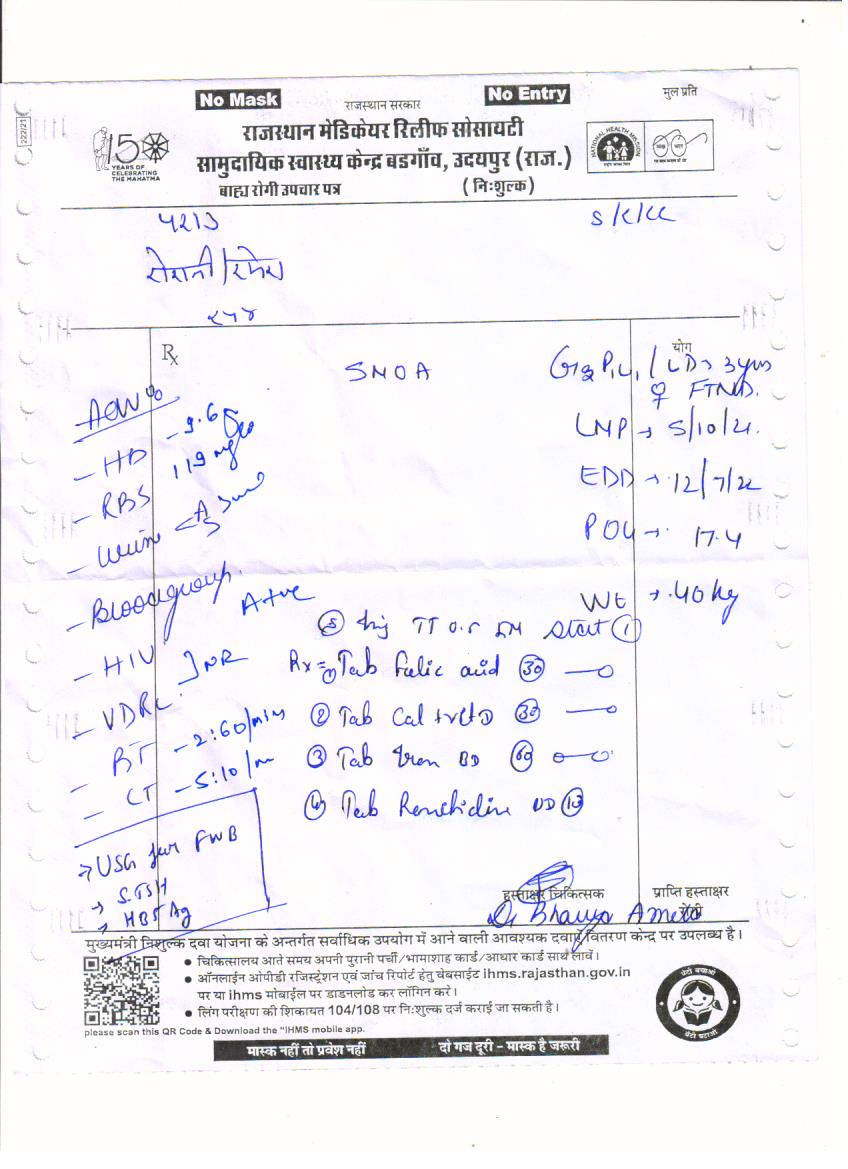 222/21
No Mask
राजस्थान सरकार
No Entry
मुल प्रति
150
YEARS OF
CELEBRATING
THE MAHATMA
राजस्थान मेडिकेयर रिलीफ सोसायटी
सामुदायिक स्वास्थ्य केन्द्र बडगाँव, उदयपुर (राज.)
बाह्य रोगी उपचार पत्र
(निःशुल्क)
NATIONAL HEALTH MISSION
Rx
योग
FTND.
LMP → 5/10/21.
EDD → 12/7/22
POG → 17.4
Wt → 40 kg
- HB - 9.6
- RBS 119 mg
- Urine
- Blood group. A+ve
- HIV
- VDRL
NR
- BT - 2:60/min
- CT - 5:10/m
→ USG for FWB
→ S.TSH
→ HBSAg
⑤ Inj TT 0.5 IM Start ①
Rx = ① Tab Folic acid ㉚
② Tab Cal + vit D ㉚
③ Tab Iron BD
④ Tab Ranitidine
हस्ताक्षर चिकित्सक
प्राप्ति हस्ताक्षर
रोगी
मुख्यमंत्री निशुल्क दवा योजना के अन्तर्गत सर्वाधिक उपयोग में आने वाली आवश्यक दवाएँ वितरण केन्द्र पर उपलब्ध है।
● चिकित्सालय आते समय अपनी पुरानी पर्ची/भामाशाह कार्ड/आधार कार्ड साथ लावें।
● ऑनलाईन ओपीडी रजिस्ट्रेशन एवं जांच रिपोर्ट हेतु वेबसाईट ihms.rajasthan.gov.in
पर या ihms मोबाईल पर डाडनलोड कर लॉगिन करे।
● लिंग परीक्षण की शिकायत 104/108 पर निःशुल्क दर्ज कराई जा सकती है।
please scan this QR Code & Download the "IHMS mobile app.
मास्क नहीं तो प्रवेश नहीं
दो गज दूरी - मास्क है जरूरी